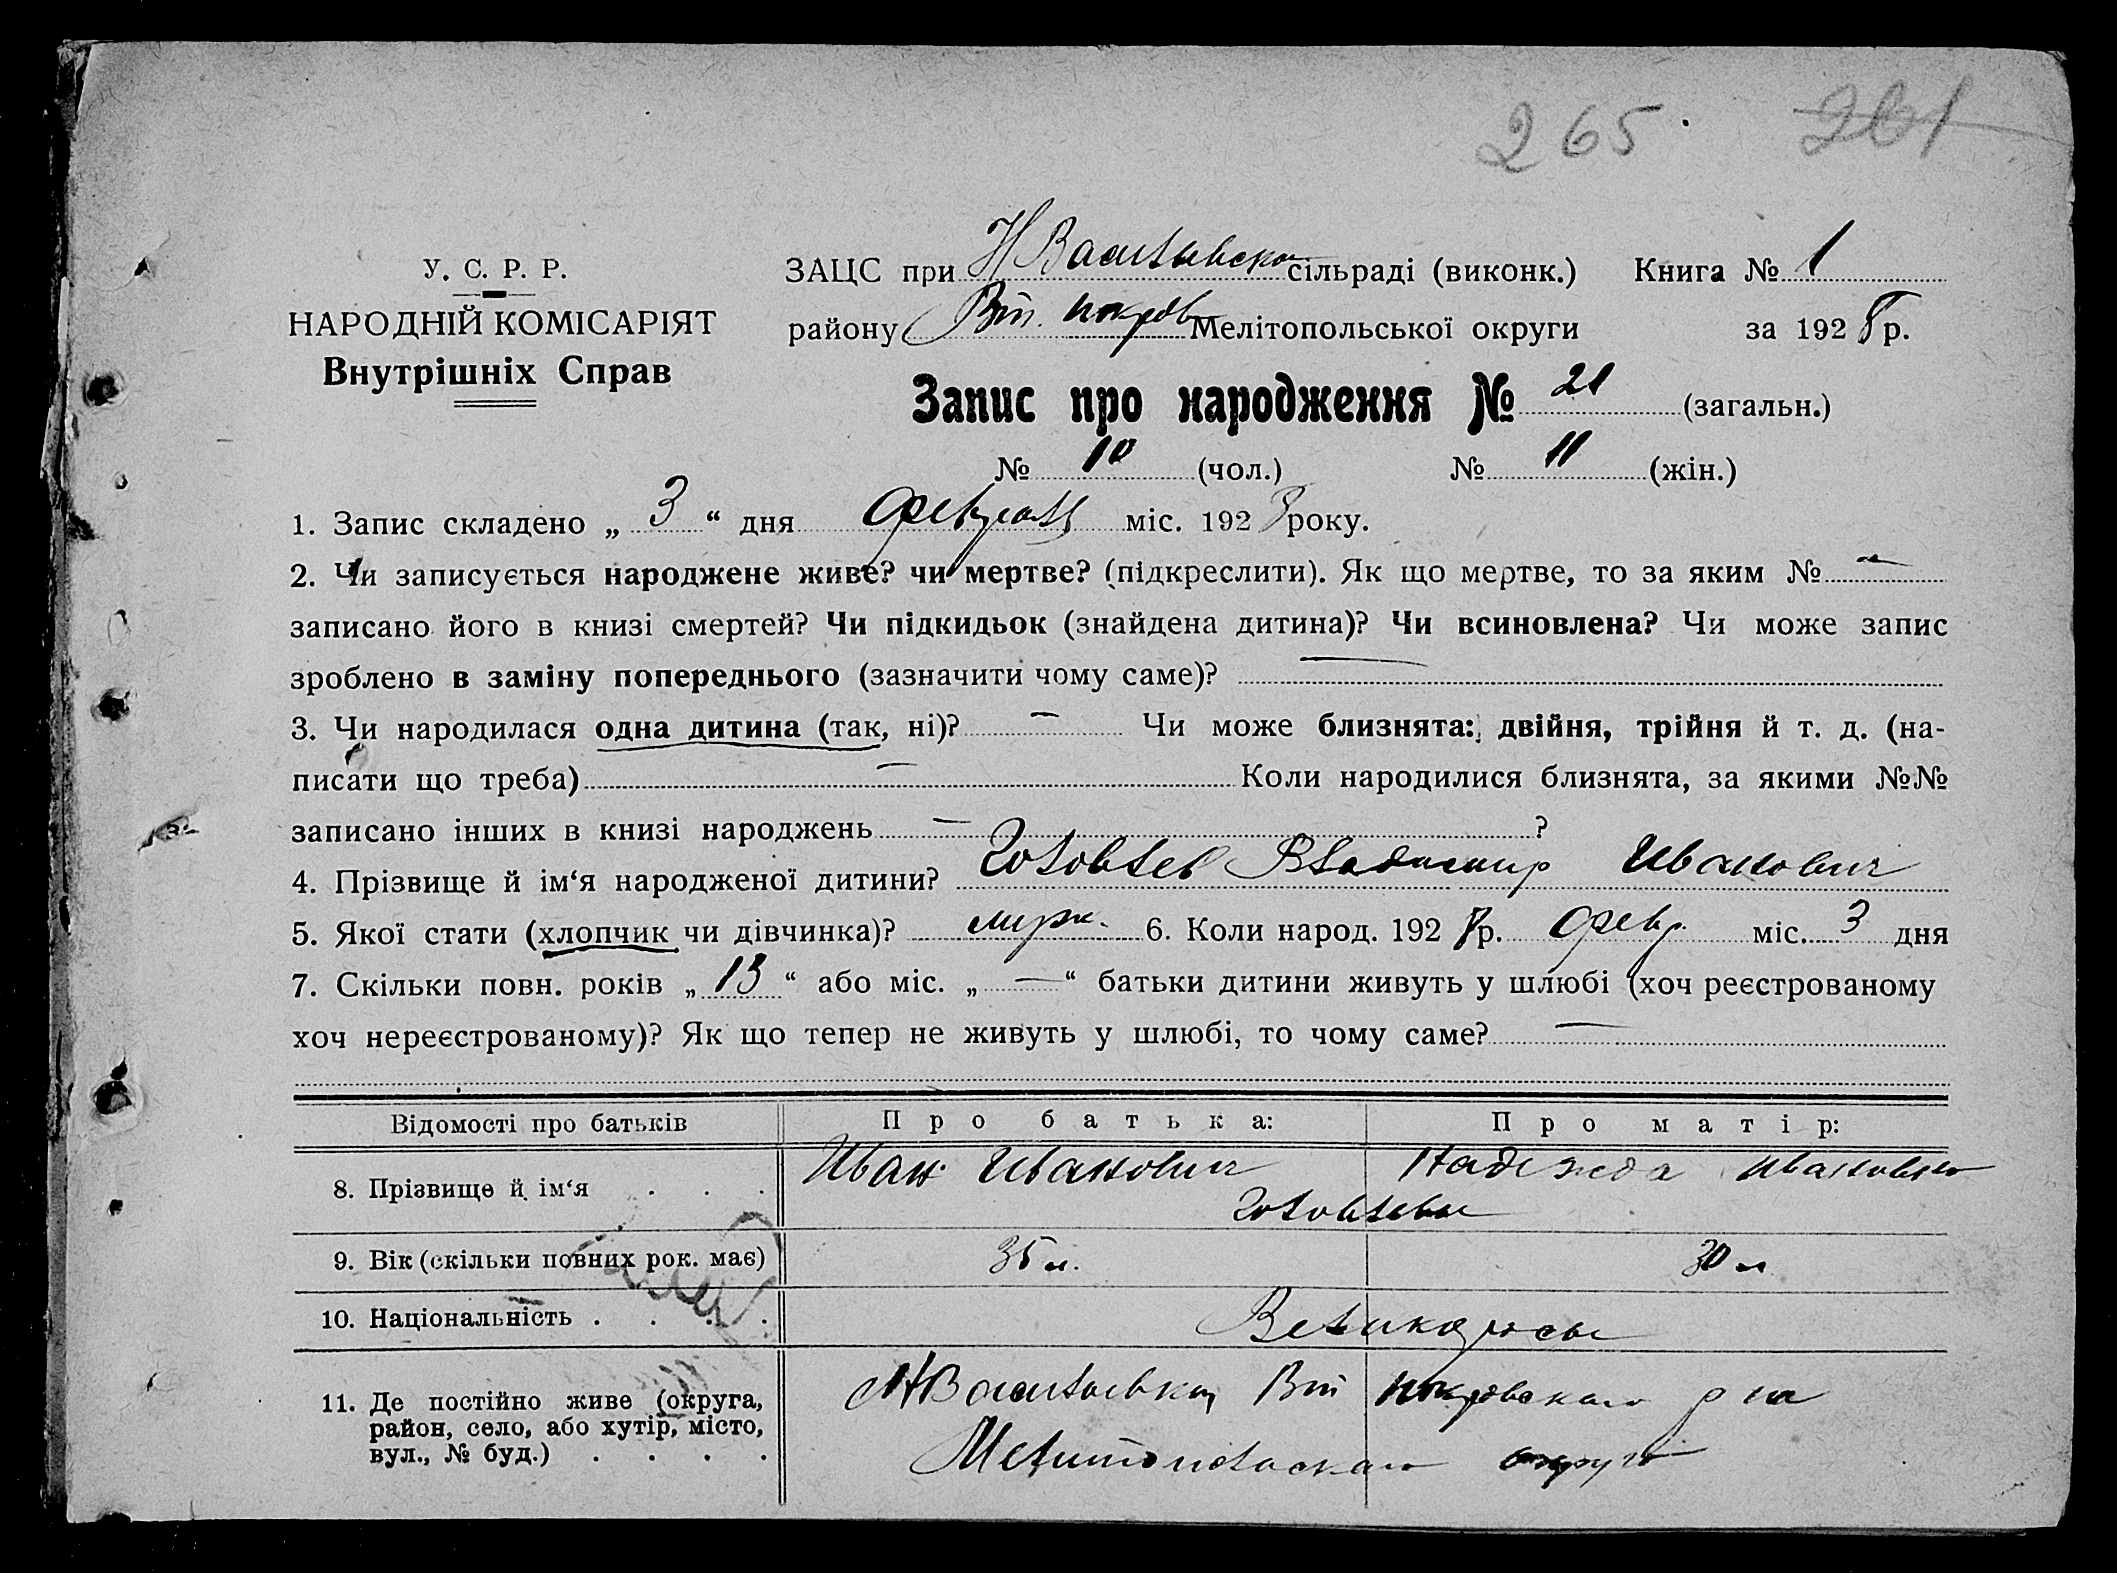 265. 261
У. С. Р. Р.
НАРОДНІЙ КОМІСАРІЯТ
Внутрішніх Справ
ЗАЦС при Н Васильевско сільраді (виконк.) Книга № 1
району Вт. покров Мелітопольської округи за 1928 р.
Запис про народження № 21 (загальн.)
№ 10 (чол.) № 11 (жін.)
1. Запис складено „ 3 “ дня февраля міс. 1928 року.
2. Чи записується народжене живе? чи мертве? (підкреслити). Як що мертве, то за яким № —
записано його в книзі смертей? Чи підкидьок (знайдена дитина)? Чи всиновлена? Чи може запис
зроблено в заміну попереднього (зазначити чому саме)? —
3. Чи народилася одна дитина (так, ні)? — Чи може близнята: двійня, трійня й т. д. (на-
писати що треба) — Коли народилися близнята, за якими №№
записано інших в книзі народжень — ?
4. Прізвище й ім‘я народженої дитини? Готовтев Владимир Иванович
5. Якої стати (хлопчик чи дівчинка)? 6. Коли народ. 1928 р. февр. міс. 3 дня
7. Скільки повн. років „ 13 “ або міс. „ — “ батьки дитини живуть у шлюбі (хоч реєстрованому
хоч нереєстрованому)? Як що тепер не живуть у шлюбі, то чому саме? —
Відомості про батьків Про батька: Про матір:
8. Прізвище й ім‘я . . . Иван Иванович Надежда Ивановна
9. Вік (скільки повних рок. має) 35 л. 30 л
10. Національність . . . . Великоросы
11. Де постійно живе (округа, район, село, або хутір, місто, вул., № буд.) . . . . Н Васильевка, Вт покровского р на
Мелитопольского округа